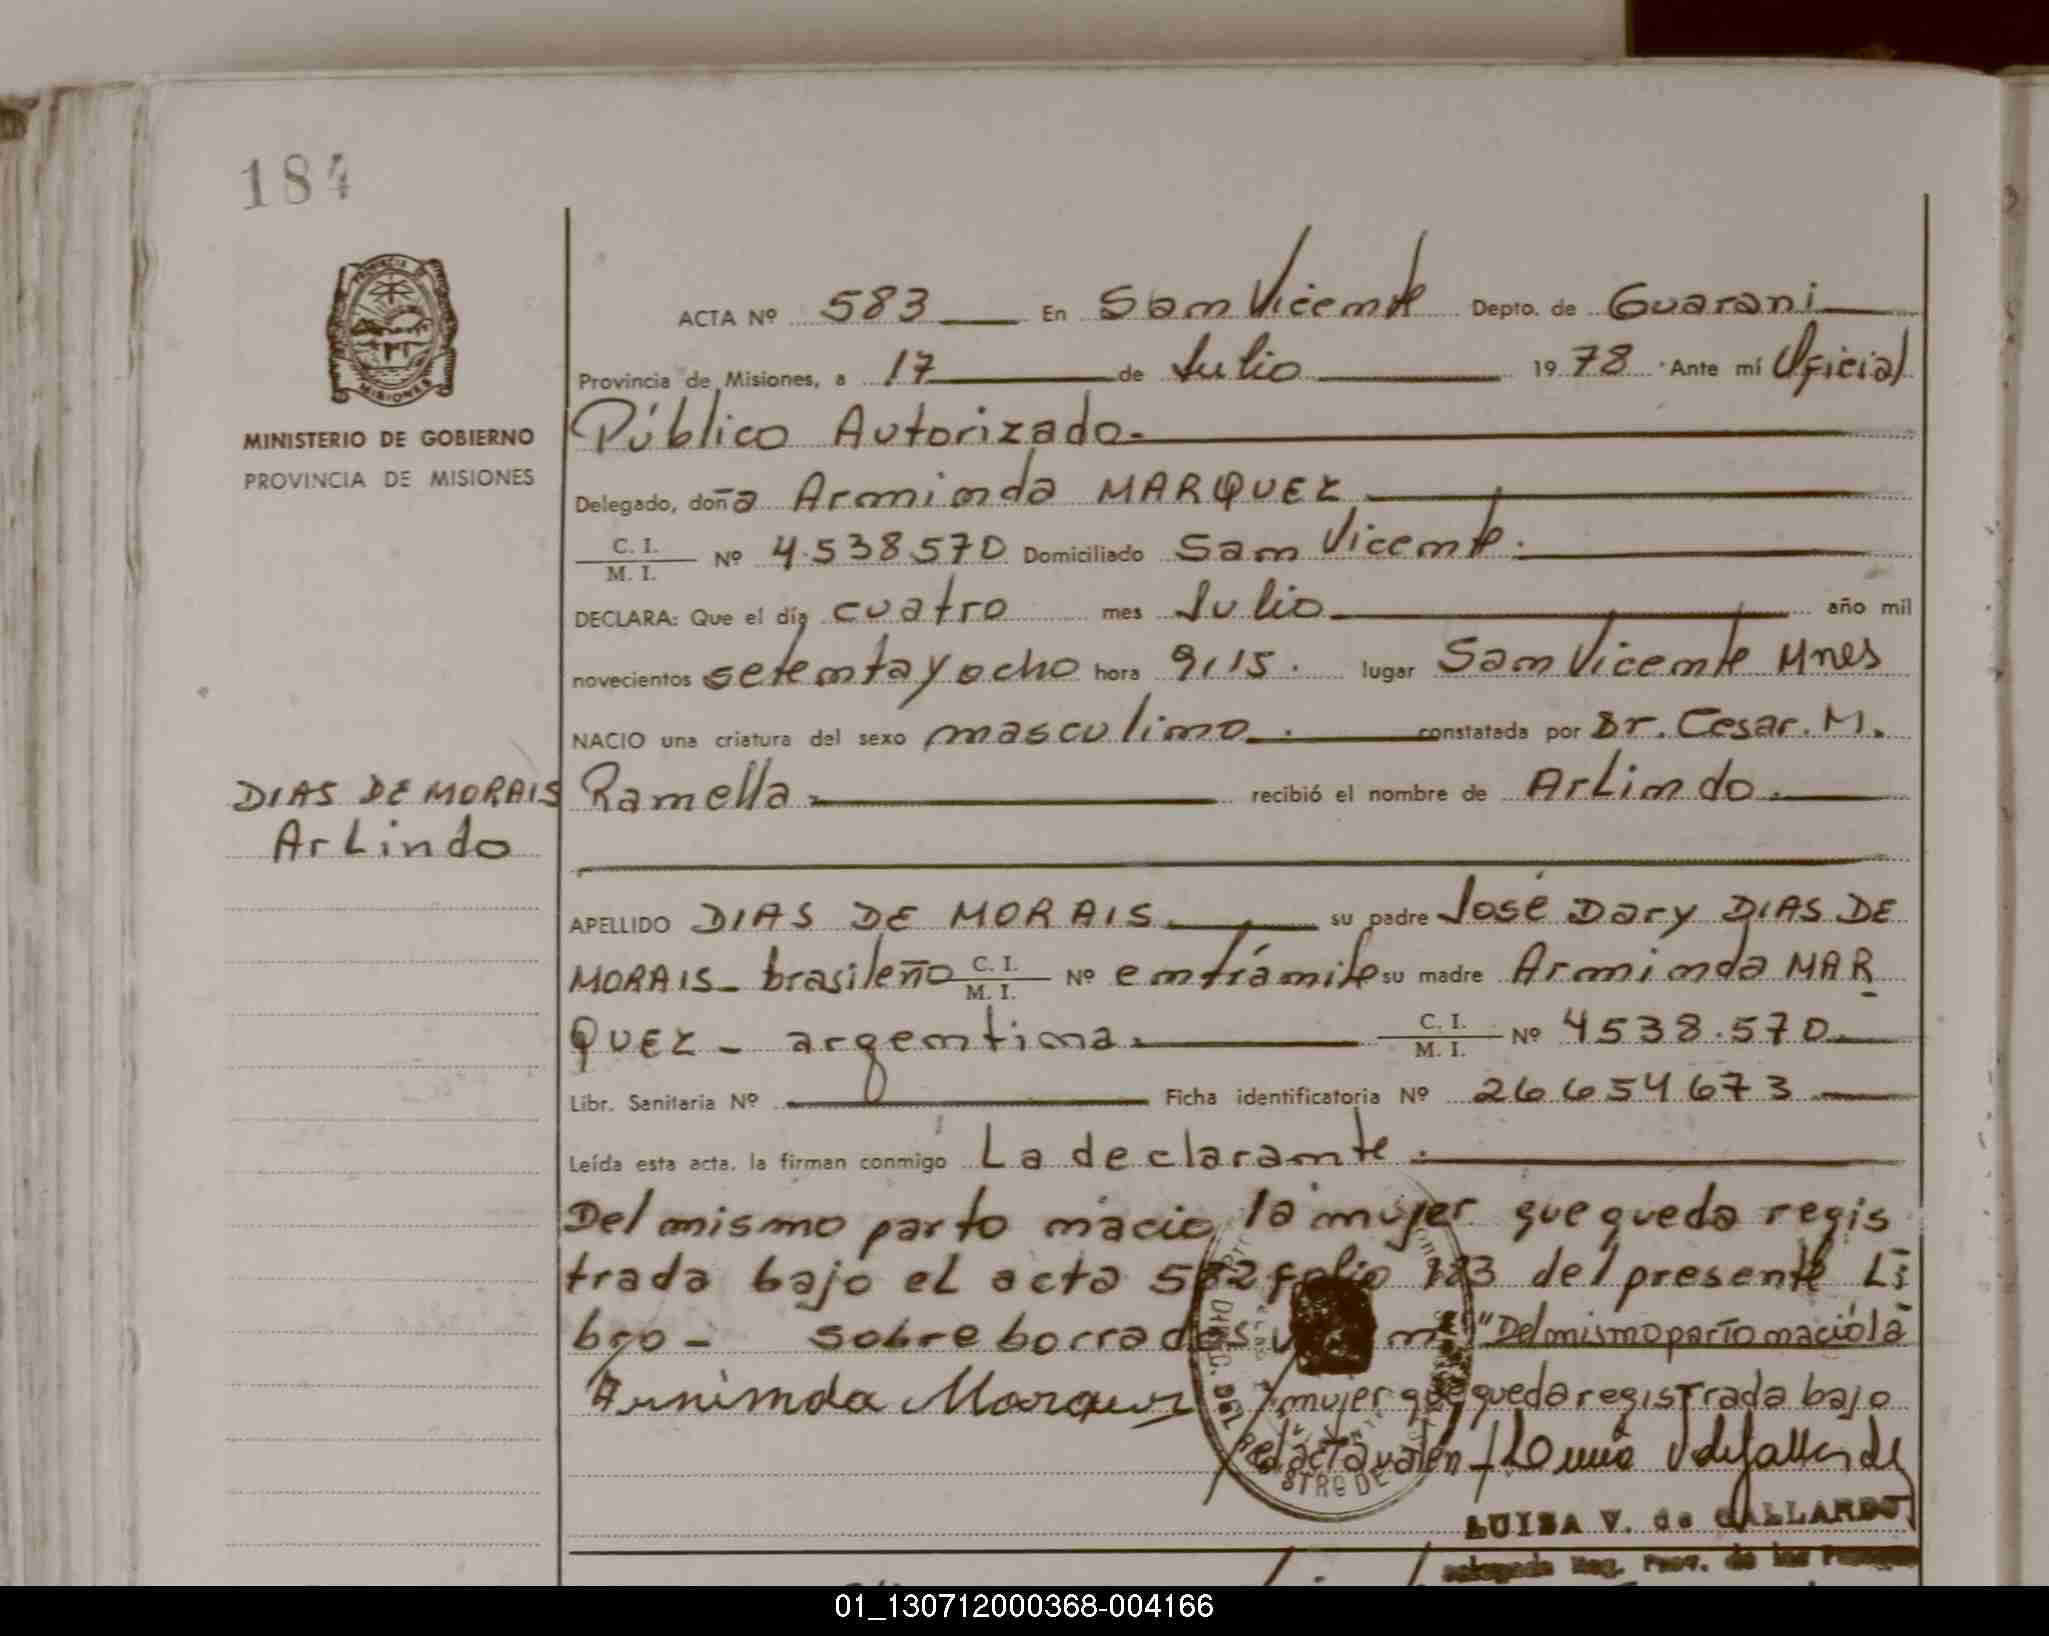 184
MINISTERIO DE GOBIERNO
PROVINCIA DE MISIONES
ACTA Nº 583 En San Vicente Depto. de Guarani
Provincia de Misiones, a 17 de Julio 1978 Ante mí Oficial
Público Autorizado.
Delegado, doña Arminda MARQUEZ
C. I. / M. I. Nº 4.538570 Domiciliado San Vicente.
DECLARA: Que el día cuatro mes Julio año mil
novecientos setenta y ocho hora 9,15. lugar San Vicente Mnes
NACIO una criatura del sexo masculino. constatada por Dr. Cesar. M.
DIAS DE MORAIS
ArLindo
Ramella recibió el nombre de ArLindo.
APELLIDO DIAS DE MORAIS su padre José Dary DIAS DE
MORAIS - brasileño C. I. / M. I. Nº en trámite su madre Arminda MAR
QUEZ - argentina. C. I. / M. I. Nº 4538.570
Libr. Sanitaria Nº Ficha identificatoria Nº 26654673
Leída esta acta, la firman conmigo La declarante.
Del mismo parto nacio la mujer que queda regis
trada bajo el acta 582 folio 183 del presente Li
bro - sobre borrados "Del mismo parto nacio la
Arminda Marquez mujer que queda registrada bajo
el acta valen
LUISA V. de GALLARDO
Delegada Reg. Prov. de las Personas
01_130712000368-004166